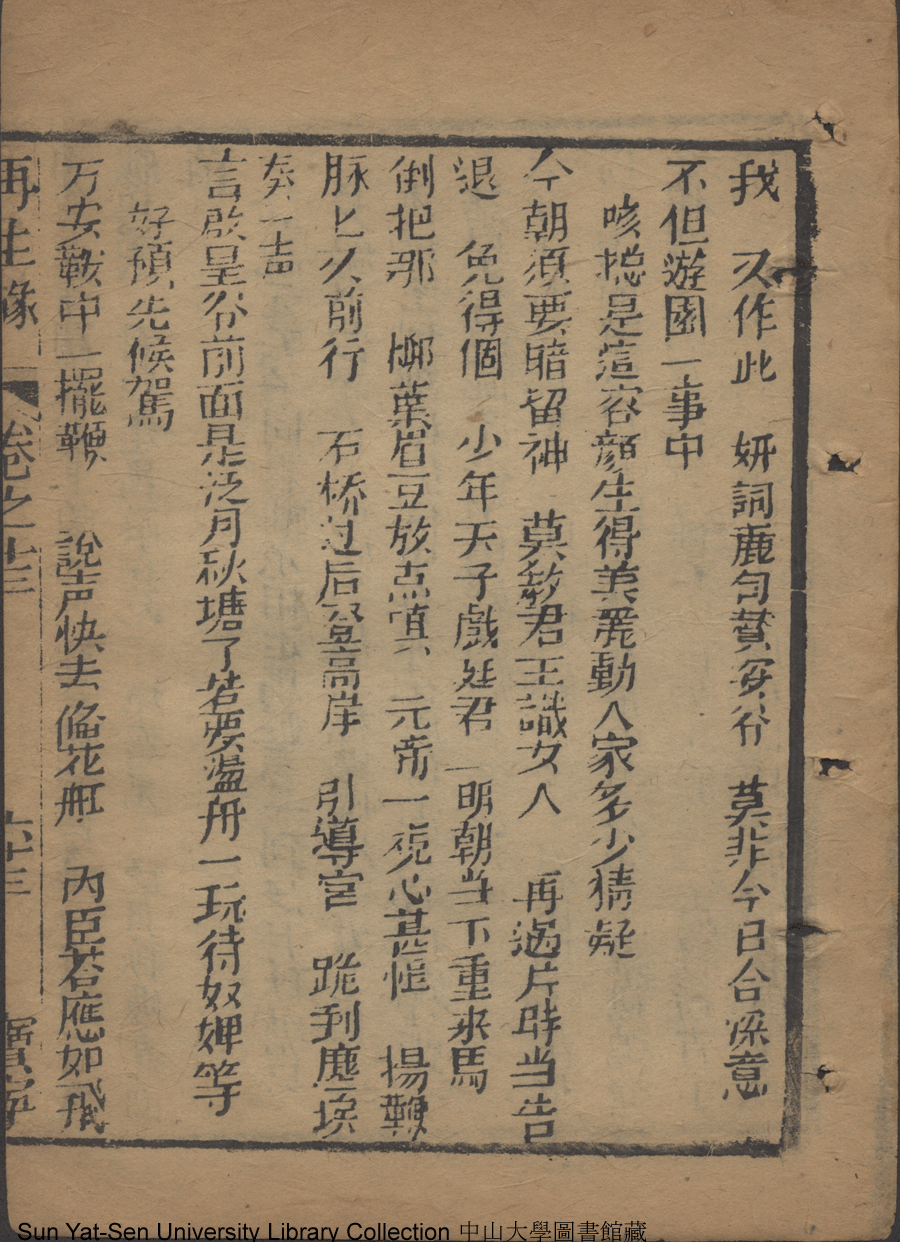 我　又作此　妍詞鹿句贊宴谷　莫非今日合深意
不但遊園一事中
咳揔是這容顏生得美麗動人家多少猜疑
今朝須要暗留神　莫教君王識女人　再過片時当告
退　免得個　少年天子戲廷君　明朝当下重来馬
倒把那　柳葉眉豆放点嗔　元帝一視心甚恠　揚鞭
脉匕久前行　石桥过后登高岸　引導宮　跪到塵埃
奏一声
言啟呈谷前面是泛月秋塘了若要盪舟一玩待奴婢等
好預先候駕
万安戰中一擺鞭　說声快去俻花舡　内臣荅應如飛
再生縁　卷之十三　六十三　寶寧
Sun Yat-Sen University Library Collection 中山大學圖書館藏